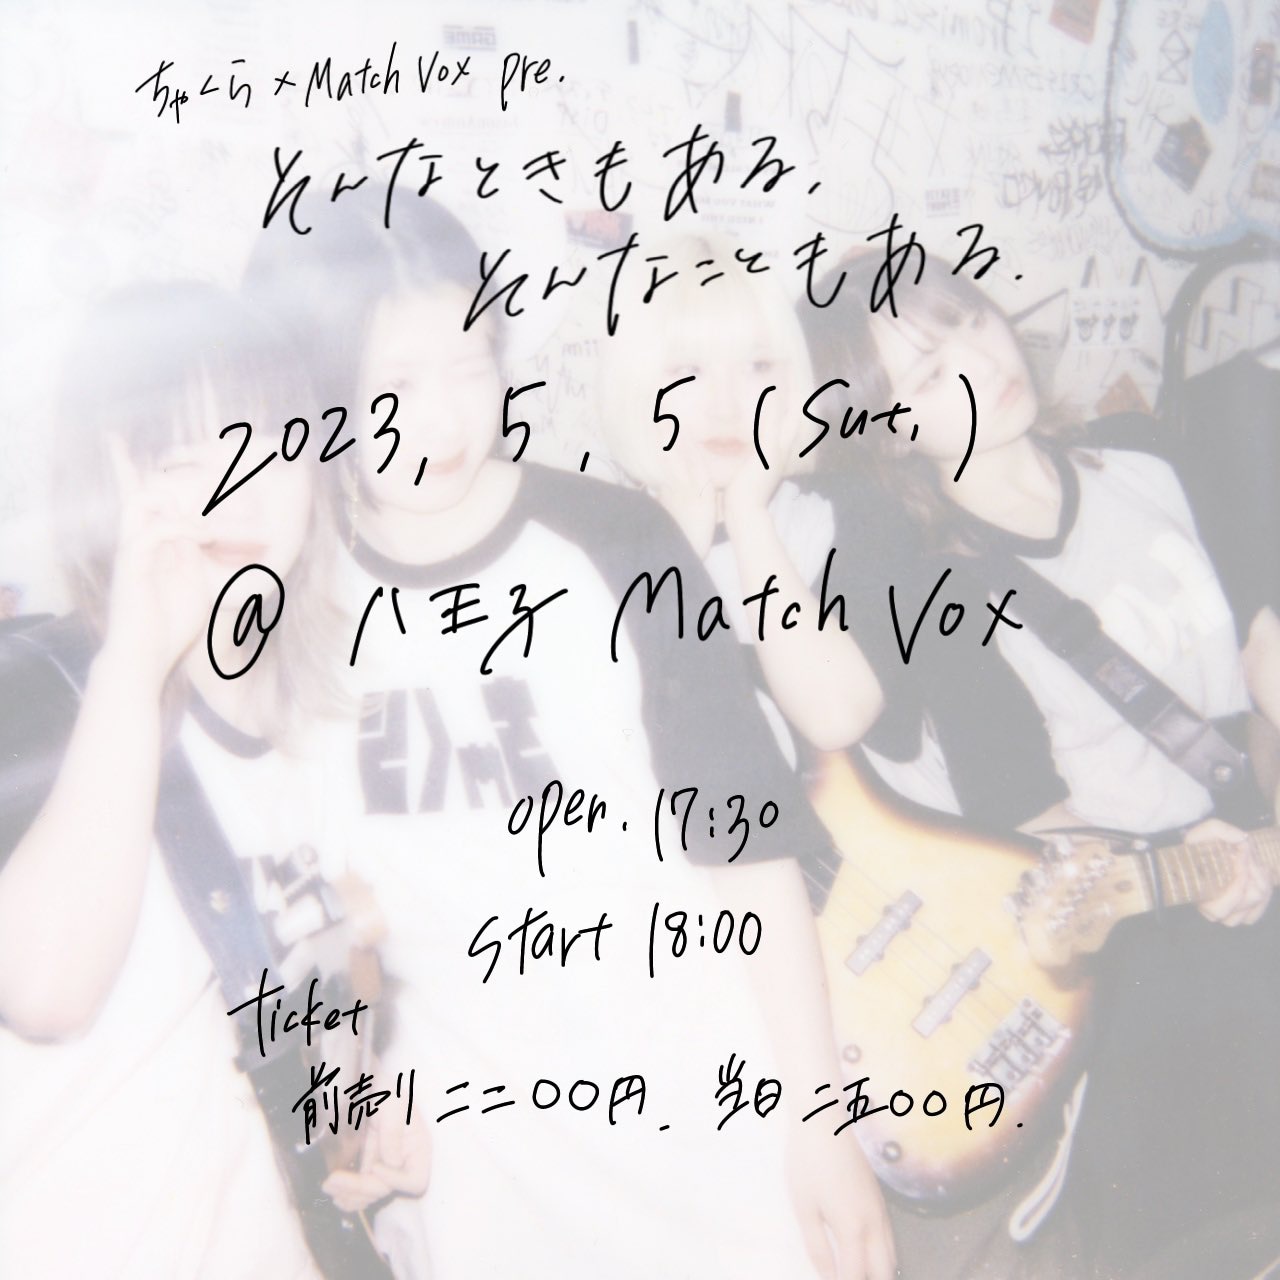 ちゃくら × Match Vox pre.
そんなときもある,
そんなこともある.
2023, 5, 5 (Sut,)
@ 八王子 Match Vox
open. 17:30
start 18:00
ticket
前売り 二二〇〇円. 当日 二五〇〇円.